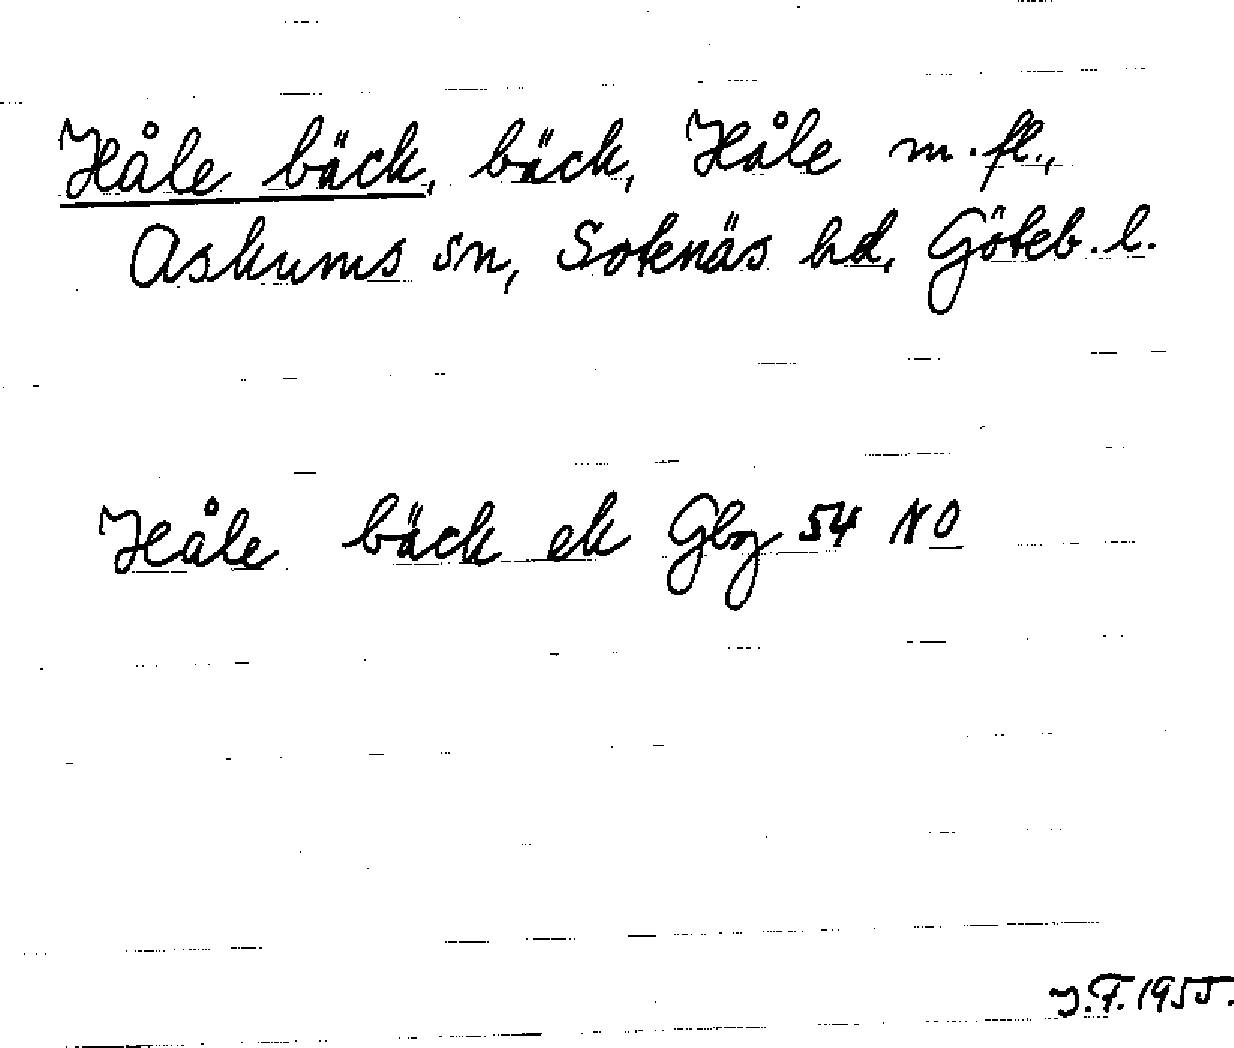 Håle bäck, bäck, Håle m.fl.,
Askums sn, Sotenäs hd, Göteb. l.
Håle bäck ek Gbg 54 NO
J.F. 1955.